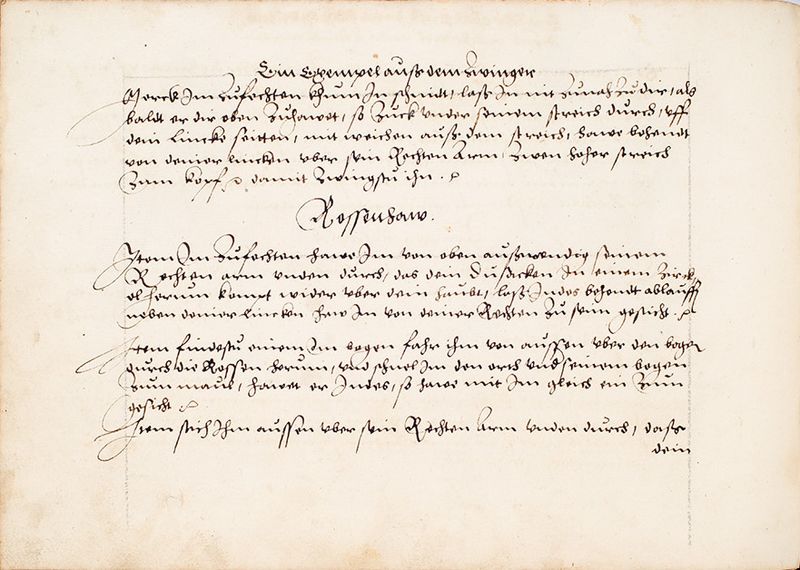 Ein Exempel auß dem Zwinger
Merck Im Zufechten khum In schnidt, laß In nit Zunah Zu dir, als
baldt er dir oben Zuhawet, so Zuck under seinem streich durch, uff
dein lincke seitten, mit weichen auß dem streich, hawe behendt
von deiner lincken uber sein Rechten Arm, Zwen hoher streich
Zum kopf damit Zwingstu ihn.
Rossenhaw.
Item Im Zufechten hawe Im von oben außwendig seinem
Rechten arm unden durch, das dein dusacken In einem Zirck,
el herum kompt wider uber dein haubt, laß Indes behendt ablauff
neben deiner lincken haw Im von deiner Rechten Zu sein gesicht.
Item findestu einem Im bogen fahr ihm von aussen uber den bogen
durch die Rossen herum, und schnel Im den orth und seinem bogen
Zum maul, hawet er Indes, so hawe mit Im gleich ein Zum
gesicht
Item stich Ihm aussen uber sein Rechten Arm unden durch, daß
dein